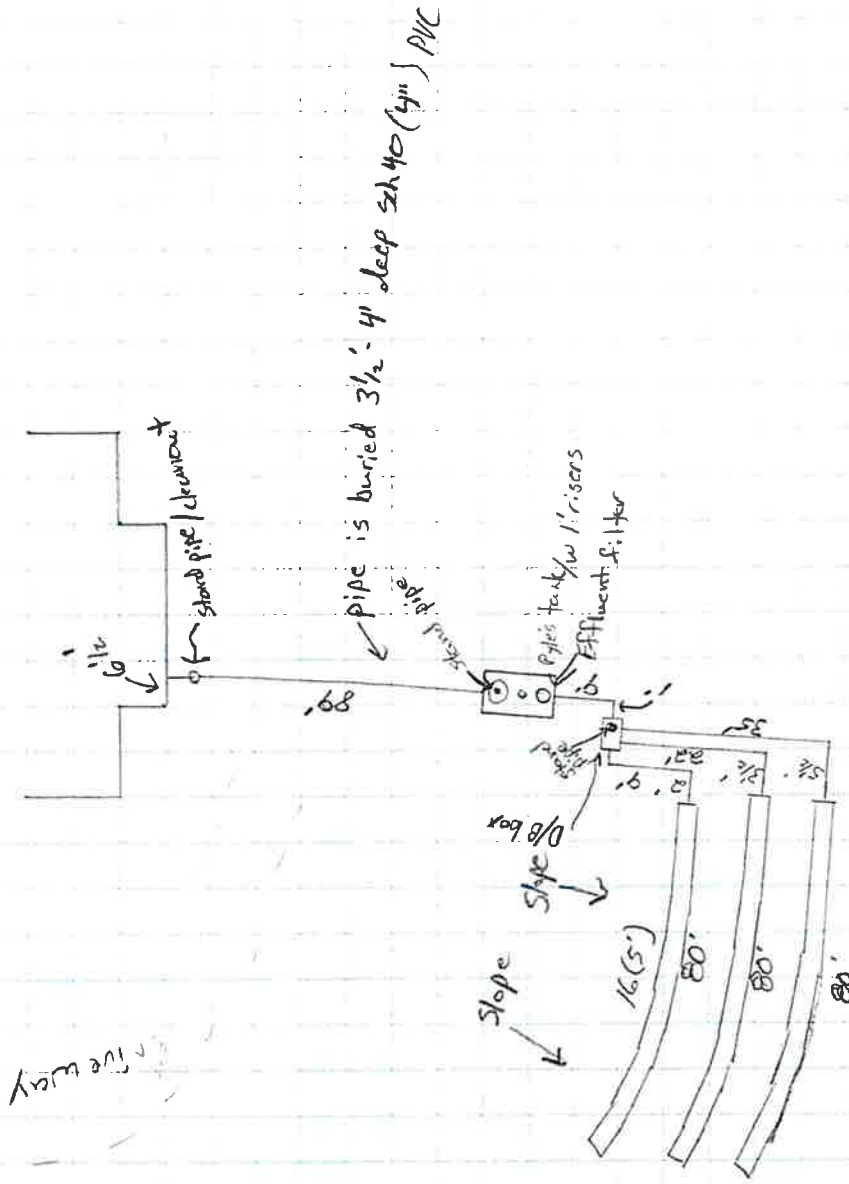 6 1/2'
stand pipe / cleanout
89'
pipe is buried 3 1/2' - 4' deep sch 40 (4") PVC
stand pipe
Pyles tank /w 1' risers
Effluent filter
9'
1'
stand pipe
D/B box
9'
2'
22'
3 1/2'
35'
5 1/2'
Slope
Slope
16(5')
80'
80'
80'
riveway